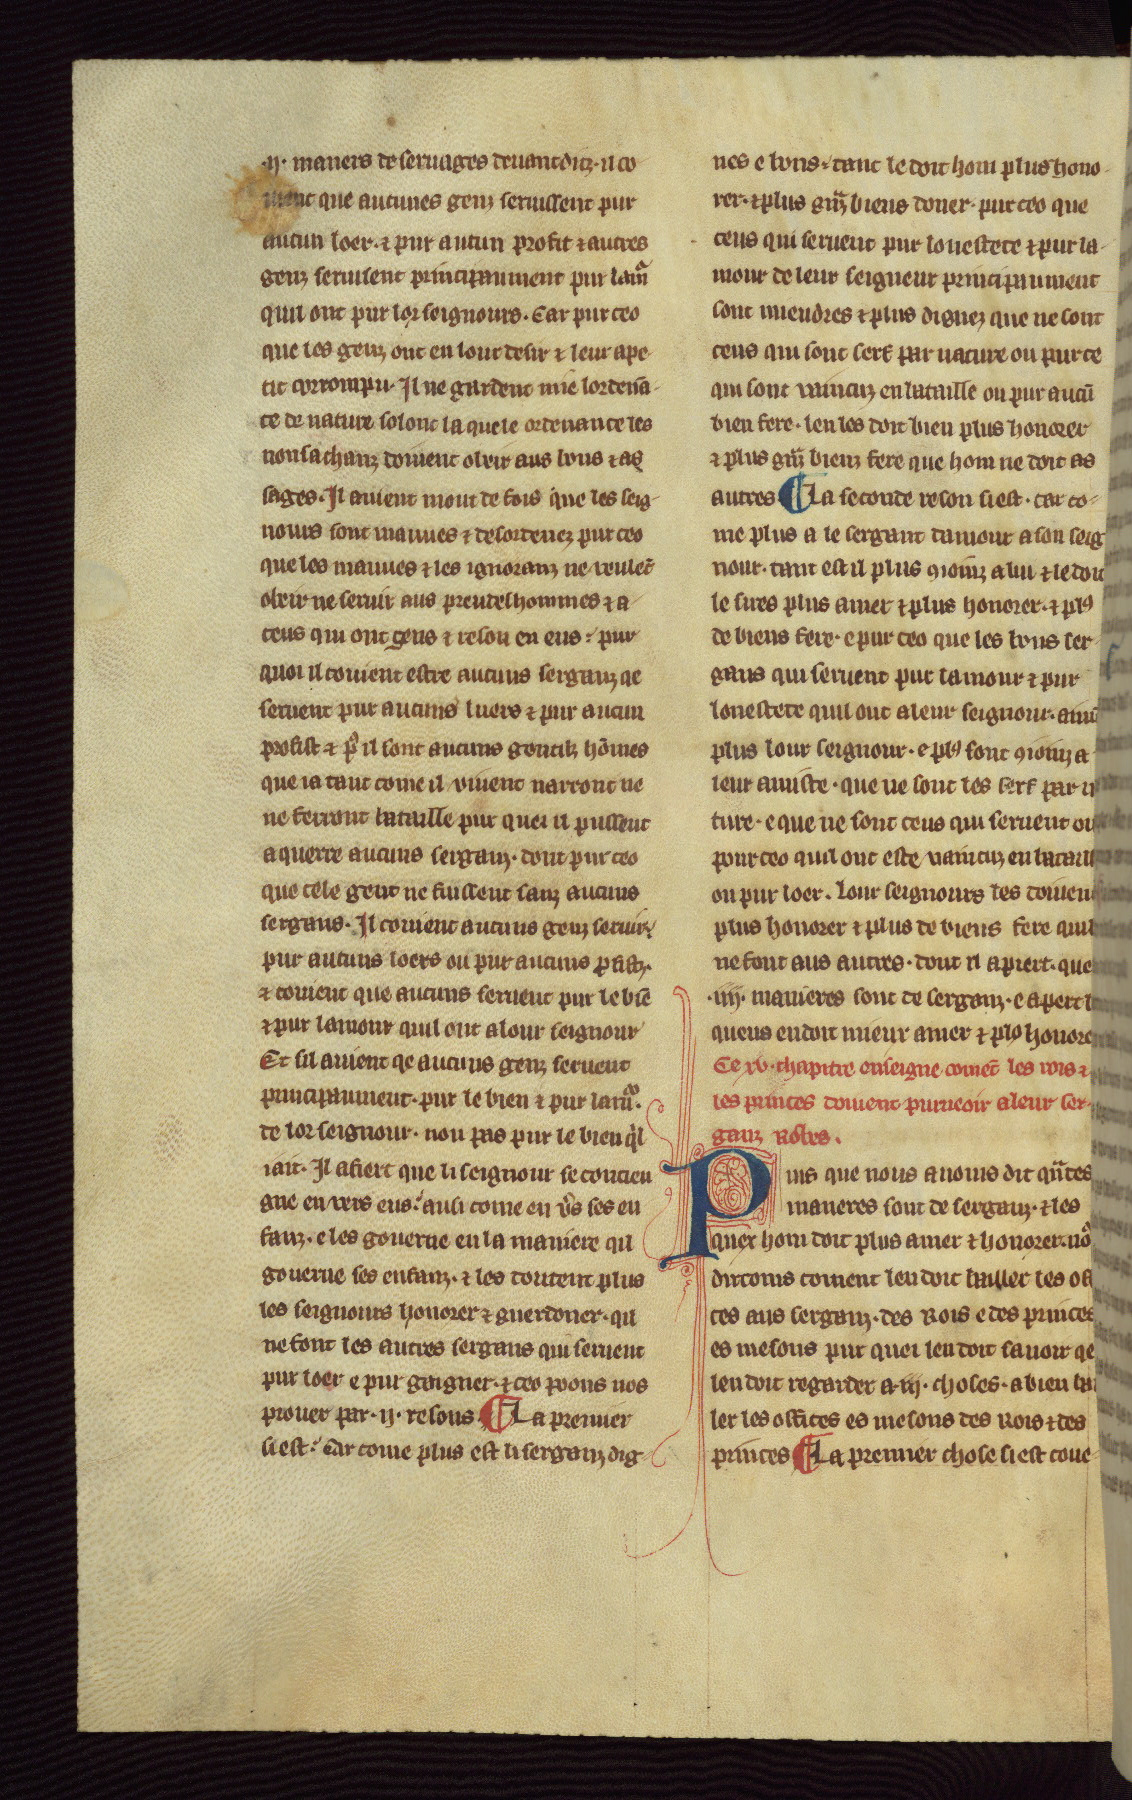 .ij. maners de seruages deuantditz. il co
uient que aucunes genz seruissent pur
aucun loer. ⁊ pur aucun profit ⁊ autres
genz seruisent principaument pur lam̃
quil ont pur lor seignours. Car pur ceo
que les genz ont en lour desir ⁊ leur ape
tit corrompu. Il ne gardent mie lordenã-
ce de nature solonc la quele ordenance les
nonsachanz doiuent obeir aus bons ⁊ as
sages. Il auient mout de fois que les seig-
nours sont mauues ⁊ desordenez pur ceo
que les mauues ⁊ les ignoranz ne veulẽt
obeir ne seruir aus preudeshommes ⁊ a
ceus qui ont sens ⁊ reson en eus. pur
quoi il couient estre aucuns serganz qe
seruent pur aucuns luers ⁊ pur aucun
profist ⁊ pͦ il sont aucuns gentilz hõmes
que ia tant come il viuent narront ne
ne ferront bataille pur quei il pussent
aquerre aucuns serganz. dont pur ceo
que cele gent ne fussent sanz aucuns
sergans. Il couient aucuns genz seruir
pur aucuns loers ou pur aucuns ꝓfistz.
⁊ couient que aucuns seruent pur le biẽ
⁊ pur lamour quil ont a lour seignour
Et sil auient qe aucuns genz seruent
principaument. pur le bien ⁊ pur lam̃.
de lor seignour. non pas pur le bien qͥl
iait. Il afiert que li seignour se contien
gne en vers eus. ausi come en vs̃ ses en
fanz. e les gouerne en la maniere qil
gouerne ses enfanz. ⁊ les doiuent plus
les seignours honorer ⁊ guerdoner. qil
ne font les autres sergans qui seruent
pur loer e pur gaigner. ⁊ ceo poons nos
prouer par. ij. resons. ¶ La premier
si est. Car come plus est li serganz dig-
nes e bons. tant le doit hom plus hono-
rer. ⁊ plus grãz biens doner. pur ceo que
ceus qui seruent pur lonestete ⁊ pur la-
mour de leur seigneur principaument
sont miendres ⁊ plus dignez que ne sont
ceus qui sont serf par nature ou pur ce
qui sont vaincuz en bataille ou pur aucũ
bien fere. len les doit bien plus honorer
⁊ plus grãz bienz fere que hom ne doit as
autres ¶ La seconde reson si est. car co-
me plus a le sergant damour a son seig
nour. tant est il plus ꝯioinz a lui ⁊ le doit
le sires plus amer ⁊ plus honorer. ⁊ plꝰ
de biens fere. e pur ceo que les bons ser
gans qui seruent pur lamour ⁊ pur
lonestete quil ont a leur seignour. aimẽ
plus lour seignour. e plꝰ sont ꝯioinz a
leur amiste. que ne sont les serf par n
ture. e que ne sont ceus qui seruent ou
pour ceo quil ont este vaincuz en bataill
ou pur loer. Lour seignours les doiuen
plus honorer ⁊ plus de biens fere quil
ne font aus autres. dont il apiert. que
.iiij. manieres sont de serganz. e apert l
queus en doit mieux amer ⁊ plꝰ honore
Ce xv. chapitre enseigne comẽt les rois ⁊
les princes doiuent purueoir a leur ser-
ganz robes.
Puis que nous auoms dit qñtes
maneres sont de serganz. ⁊ les
quex hom doit plus amer ⁊ honorer. noͫ
diroms coment len doit bailler les off
ces aus serganz. des Rois e des princes
es mesons pur quei len doit sauoir qe
len doit regarder a. iij. choses. a bien bai
ler les offices es mesons des Rois ⁊ des
princes ¶ La premier chose si est coue-